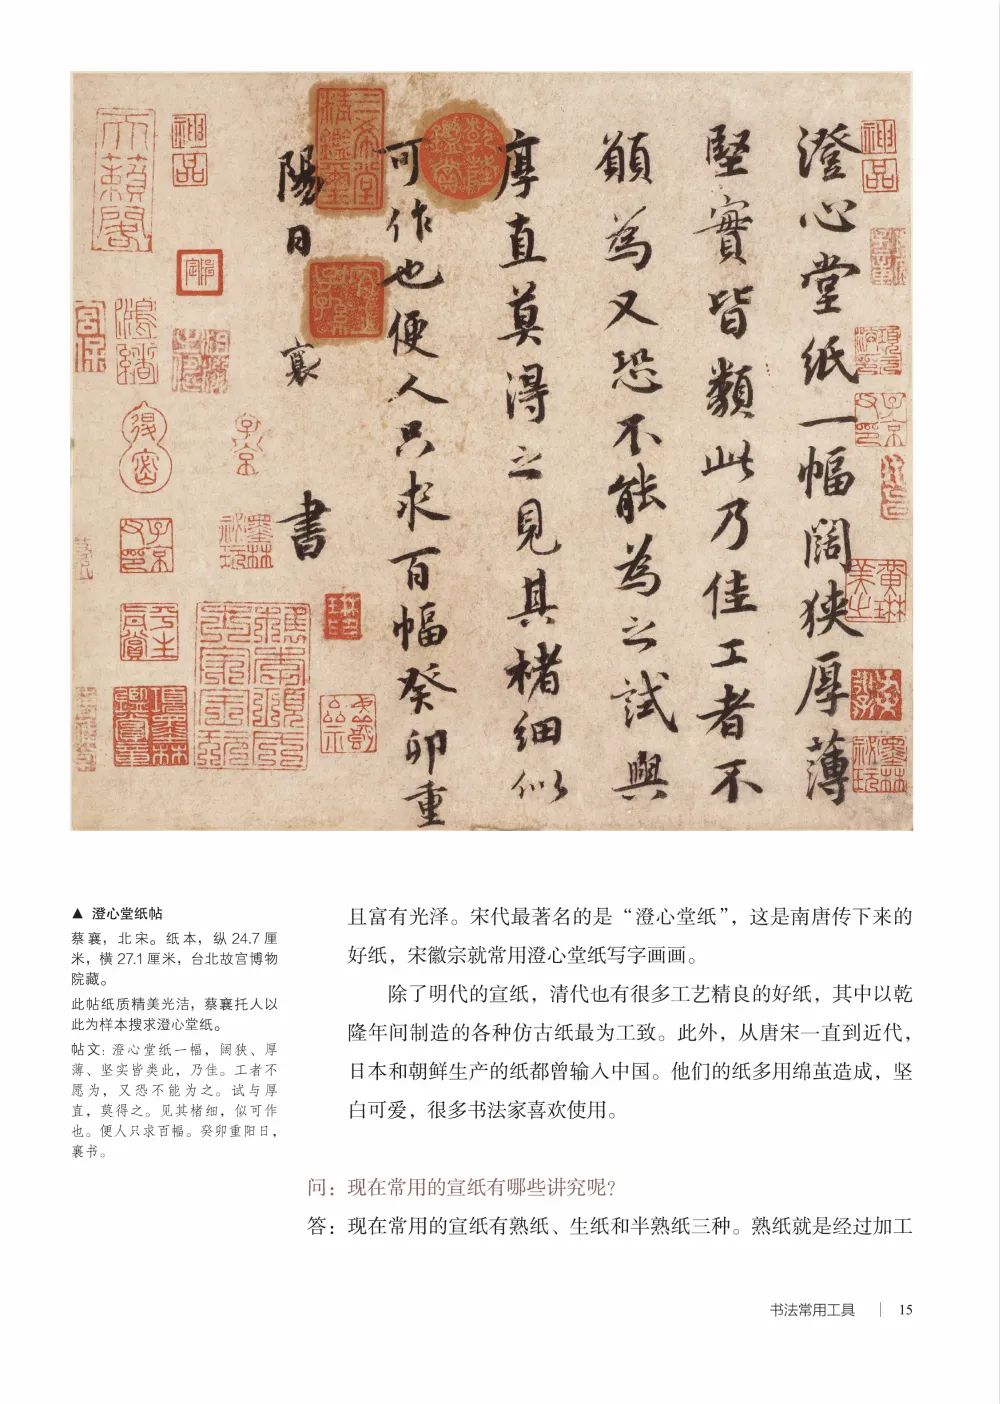 澄心堂紙一幅闊狹厚薄
堅實皆類此乃佳工者不
願為又恐不能為之試與
厚直莫得之見其楮細似
可作也便人只求百幅癸卯重
陽日 襄 書
神品
子京父印
墨林祕玩
乾隆鑑賞
三希堂精鑑璽
宜子孫
神品
天籟閣
宮保
子京
墨林祕玩
子京父印
項墨林鑑賞章
▲ 澄心堂纸帖
蔡襄，北宋。纸本，纵 24.7 厘
米，横 27.1 厘米，台北故宫博物
院藏。
此帖纸质精美光洁，蔡襄托人以
此为样本搜求澄心堂纸。
帖文：澄心堂纸一幅，阔狭、厚
薄、坚实皆类此，乃佳。工者不
愿为，又恐不能为之。试与厚
直，莫得之。见其楮细，似可作
也。便人只求百幅。癸卯重阳日，
襄书。
且富有光泽。宋代最著名的是“澄心堂纸”，这是南唐传下来的
好纸，宋徽宗就常用澄心堂纸写字画画。
除了明代的宣纸，清代也有很多工艺精良的好纸，其中以乾
隆年间制造的各种仿古纸最为工致。此外，从唐宋一直到近代，
日本和朝鲜生产的纸都曾输入中国。他们的纸多用绵茧造成，坚
白可爱，很多书法家喜欢使用。
问：现在常用的宣纸有哪些讲究呢？
答：现在常用的宣纸有熟纸、生纸和半熟纸三种。熟纸就是经过加工
书法常用工具 | 15